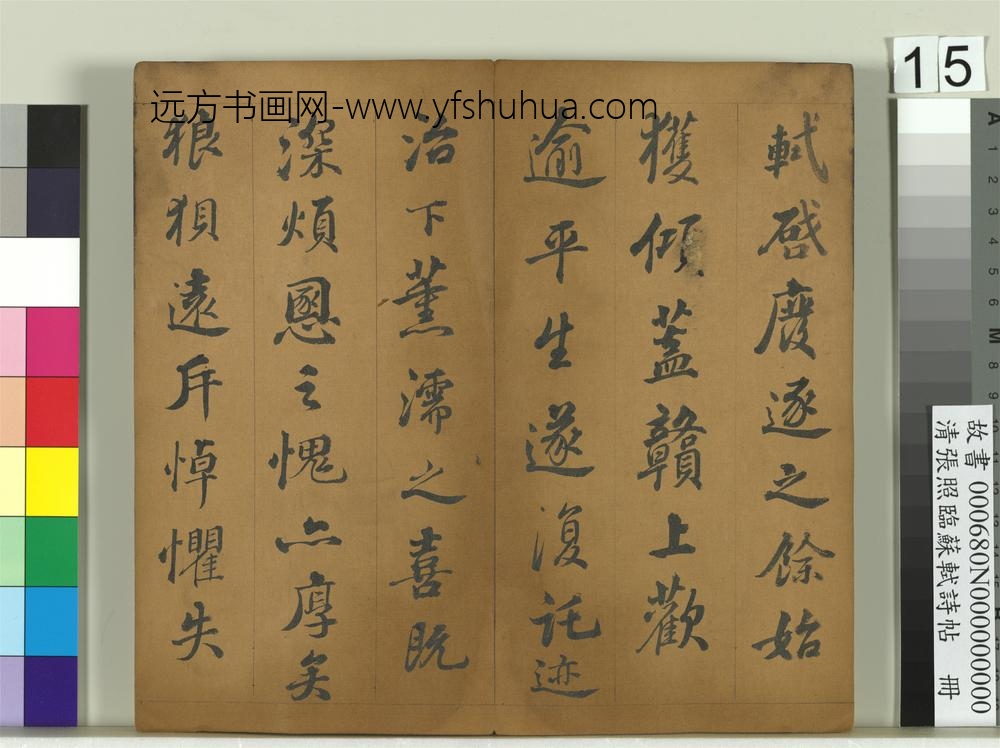 远方书画网-www.yfshuhua.com
軾啓廢逐之餘始
獲傾蓋贛上歡
逾平生遂復託迹
治下薰濡之喜既
深煩恩之愧亦厚矣
狼狽遠斥悼懼失
15
A
1
2
3
4
5
6
M
8
9
故書 000680N000000000
清張照臨蘇軾詩帖 冊